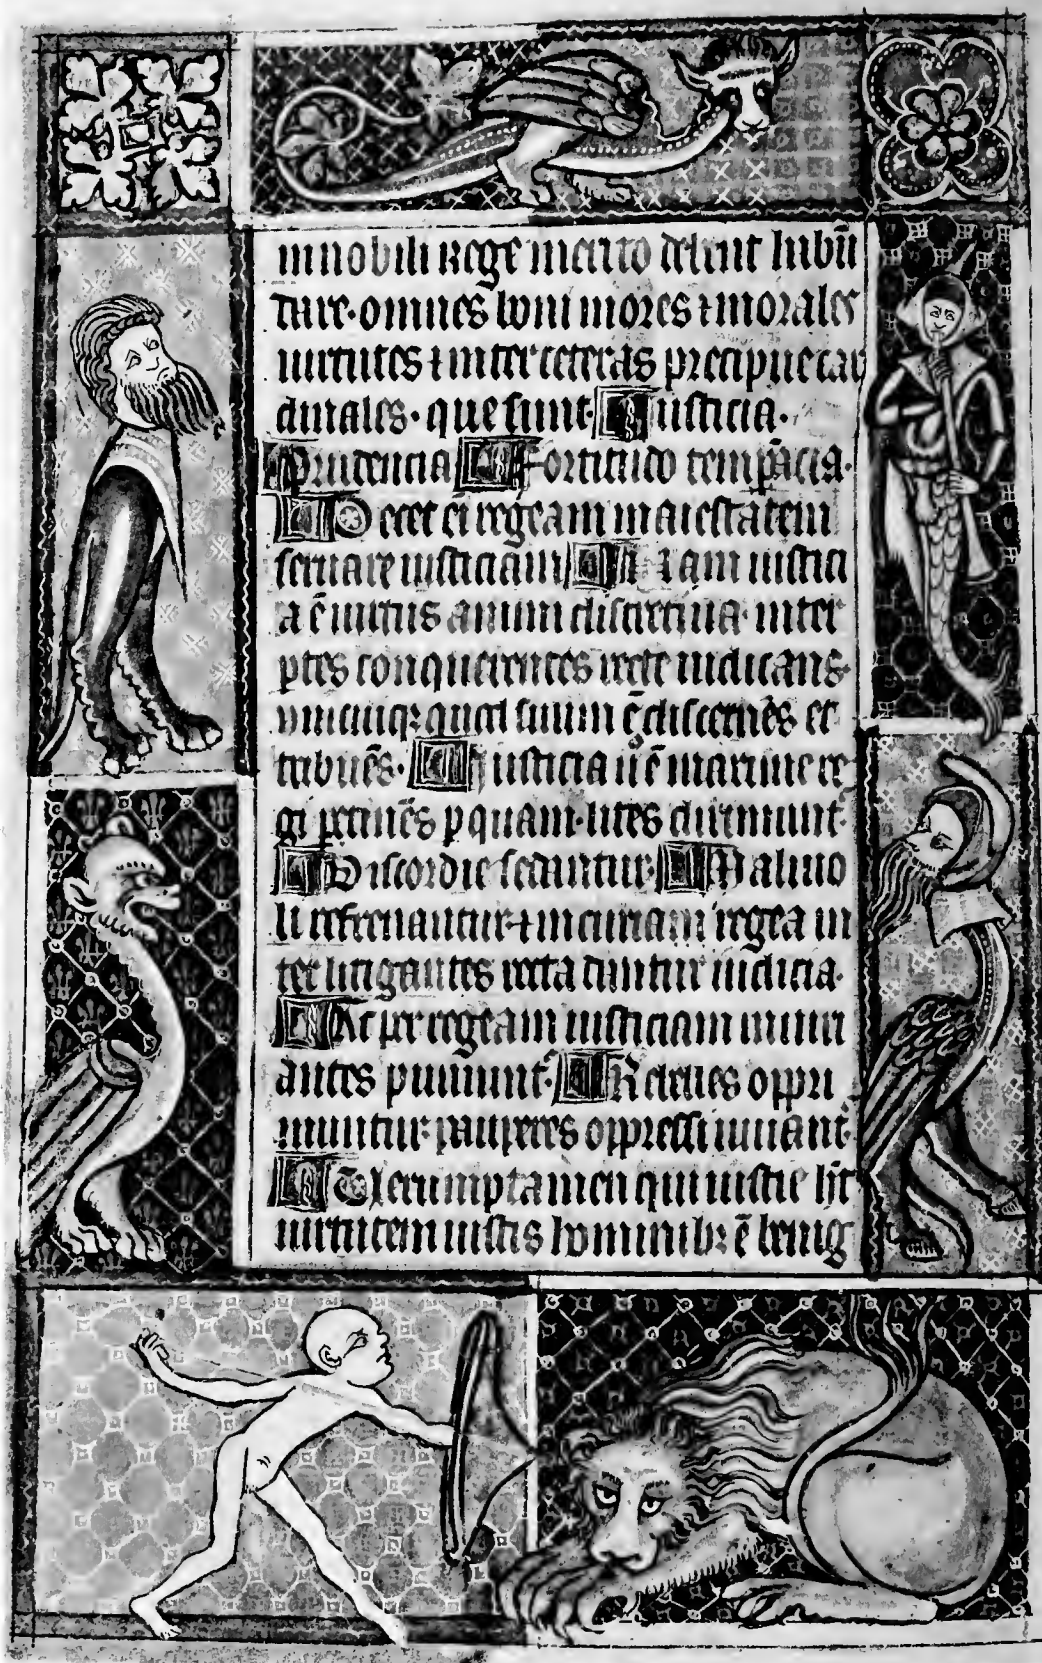 in nobili rege merito debent habun
dare. omnes boni mores ⁊ morales
uirtutes ⁊ inter ceteras precipue car
dinales. que sunt. Iusticia.
Prudencia Fortitudo temp̄ācia.
Decet eī regeam maiestatem
seruare iusticiam Nam iustici
a ē uirtus animi discretiua. inter
ptes conquerentes recte iudicans.
unicuiqꝫ quod suum ē discernēs et
tribuēs. Iusticia uº ē maxime re
gi ꝑtinēs ꝑ quam. lites dirimunt̄.
Discordie sedantur. Maliuo
li refrenantur ⁊ in curiam regea in
ter litigantes recta dantur iudicia.
At per regeam iusticiam minu
antes puniunt̄. Rebelles oppri
muntur. pauperes oppressi iuuant̄.
Uerumptamen qui iustie hīt
uirtutem iustis hominibꝫ ē benig